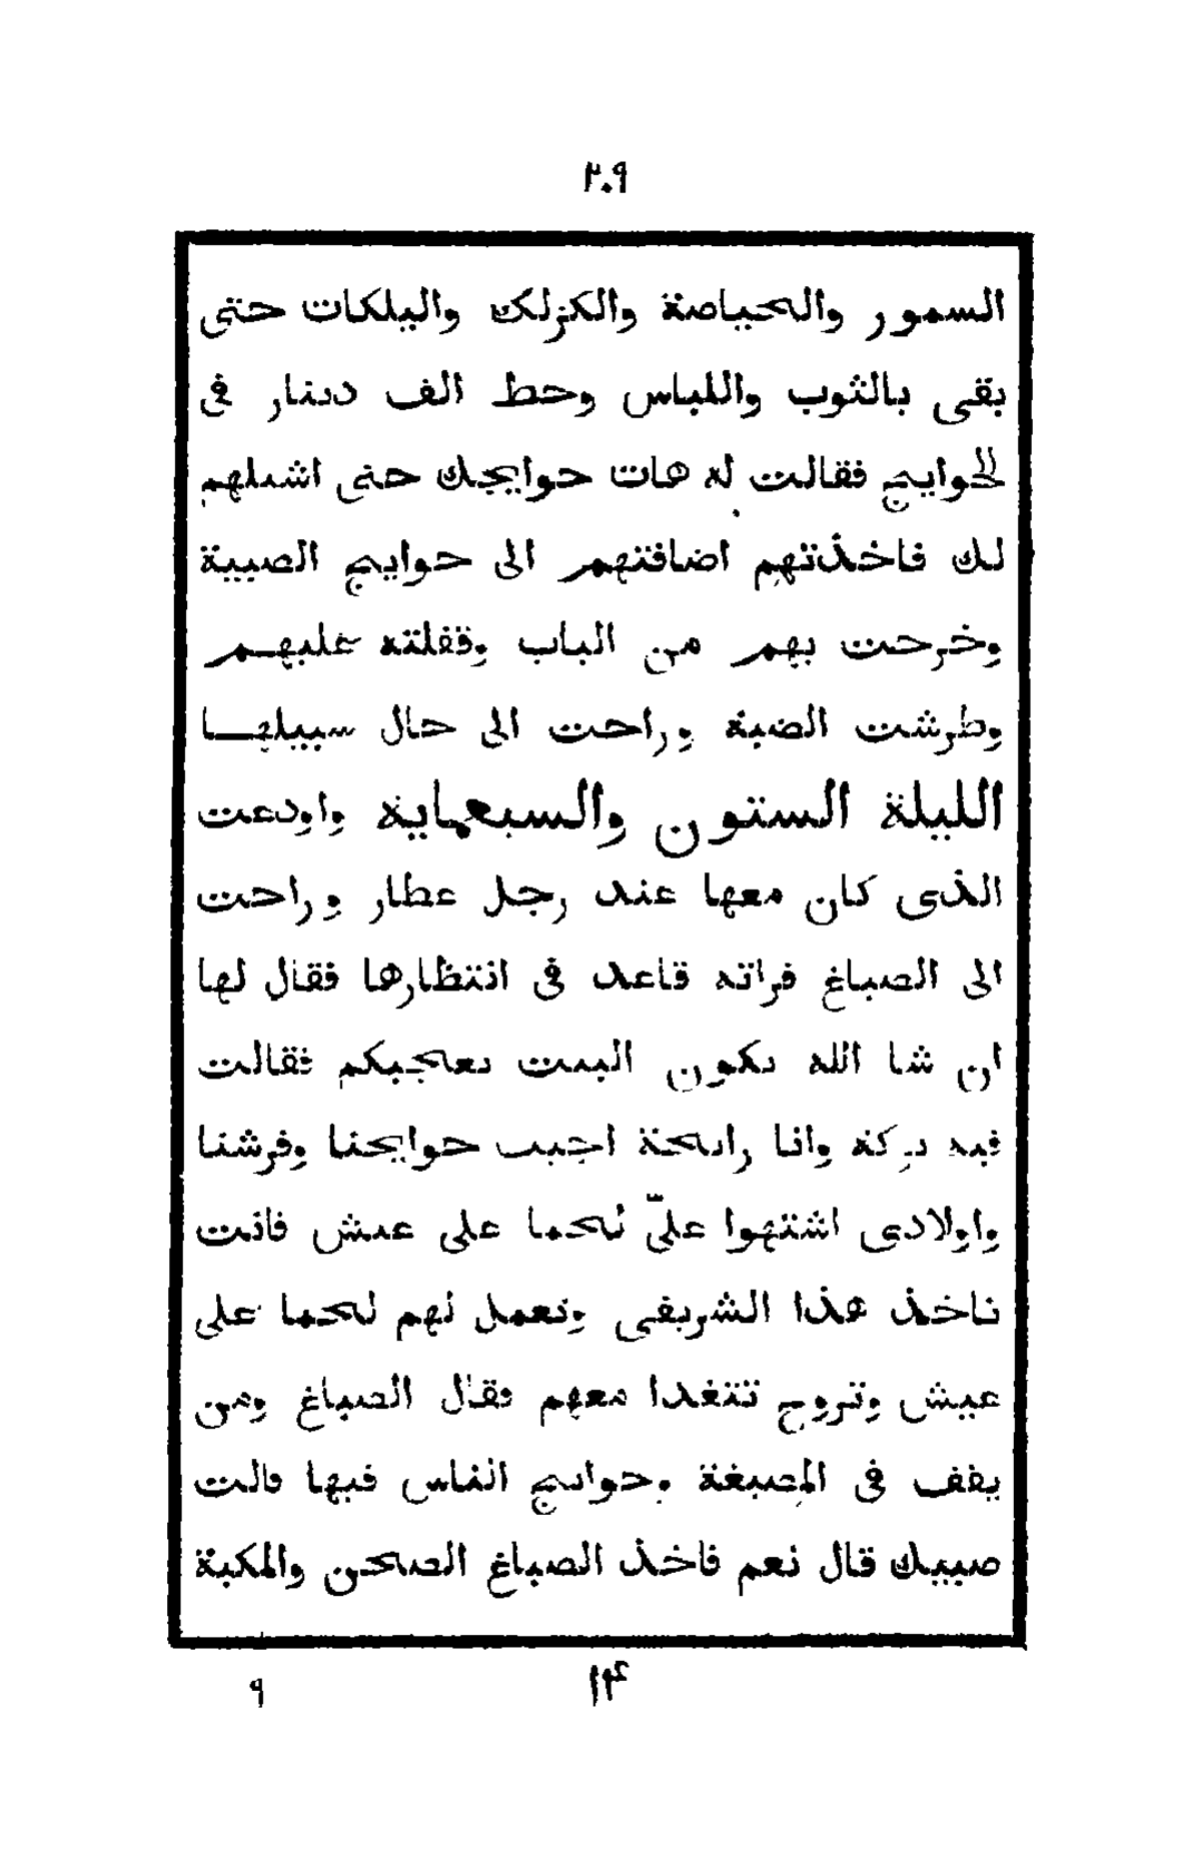 ٢٠٩
السمور والحياصة والكزلك واليلكات حتى
بقى بالثوب واللباس وحط الف دينار فى
الحوايج فقالت له هات حوايجك حتى اشيلهم
لك فاخذتهم اضافتهم الى حوايج الصبية
وخرجت بهم من الباب وقفلته عليهم
وطرشت الضبة وراحت الى حال سبيلها
الليلة الستون والسبعماية واودعت
الذى كان معها عند رجل عطار وراحت
الى الصباغ فراته قاعد فى انتظارها فقال لها
ان شا الله يكون البيت يعجبكم فقالت
فيه بركة وانا رايحة اجيب حوايجنا وفرشنا
واولادى اشتهوا علىّ لحما على عيش فانت
تاخذ هذا الشريفى وتعمل لهم لحما على
عيش وتروح تتغدا معهم فقال الصباغ ومن
يقف فى المصبغة وحوايج الناس فيها قالت
صبيك قال نعم فاخذ الصباغ الصحن والمكبة
١٤
٩